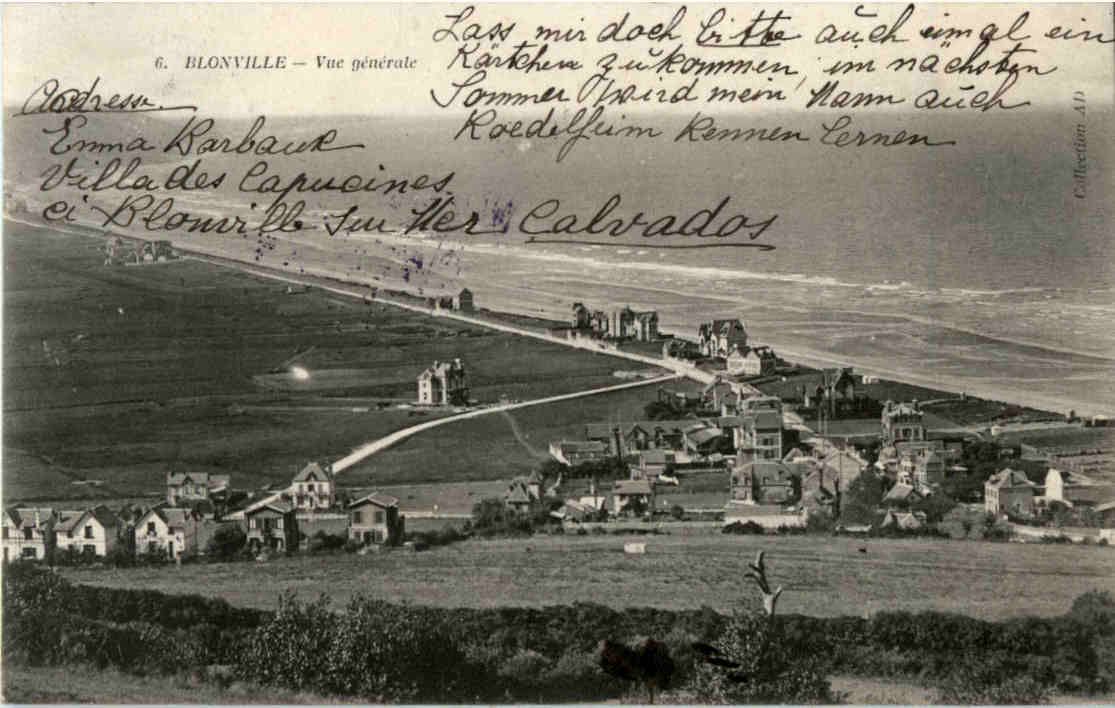 Lass mir doch bitte auch einmal ein
Kärtchen zukommen, im nächsten
Sommer wird mein Mann auch
Roedelheim kennen lernen
6. BLONVILLE — Vue générale
Adresse.
Emma Barbauk
Villa des Capucines
à Blonville Sur Mer Calvados
Collection AD